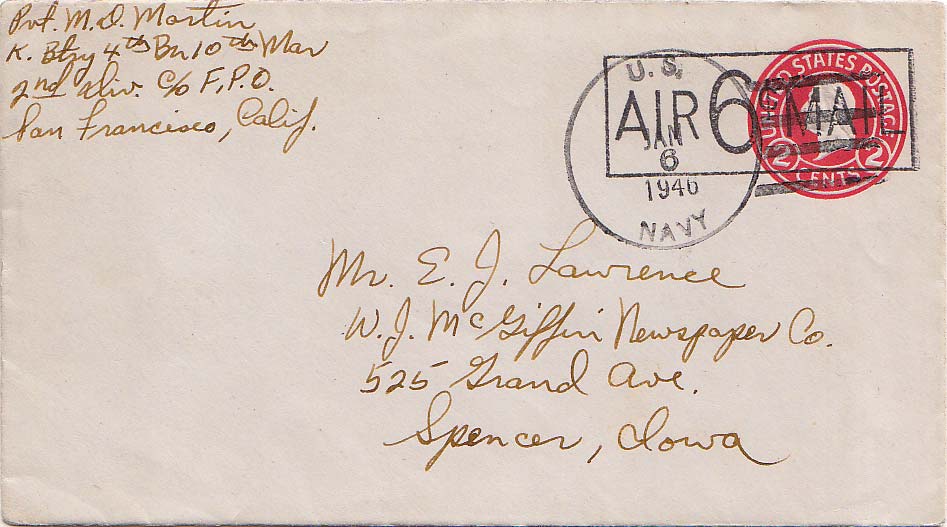 Pvt. M. D. Martin
K. Btry 4th Bn 10th Mar
2nd Div. c/o F.P.O.
San Francisco, Calif.
U.S.
AIR 6¢ MAIL
JAN
6
1946
NAVY
UNITED STATES POSTAGE
2 CENTS 2
Mr. E. J. Lawrence
W. J. McGiffin Newspaper Co.
525 Grand Ave.
Spencer, Iowa